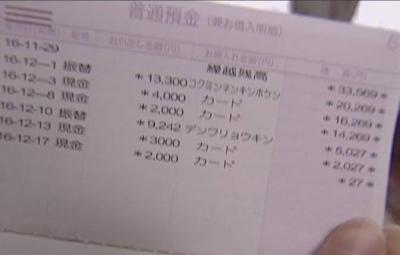 普通預金(兼お借入明細)
お引出し金額(円) お預入れ金額(円)
16-11-29 繰越残高 *33,569*
16-12--1 振替 *13,300 コクミンネンキンホケン *20,269*
16-12--3 現金 *4,000 カード *16,269*
16-12--8 現金 *2,000 カード *14,269*
16-12-10 振替 *9,242 デンワリョウキン *5,027*
16-12-13 現金 *3000 カード *2,027*
16-12-17 現金 *2,000 カード *27*